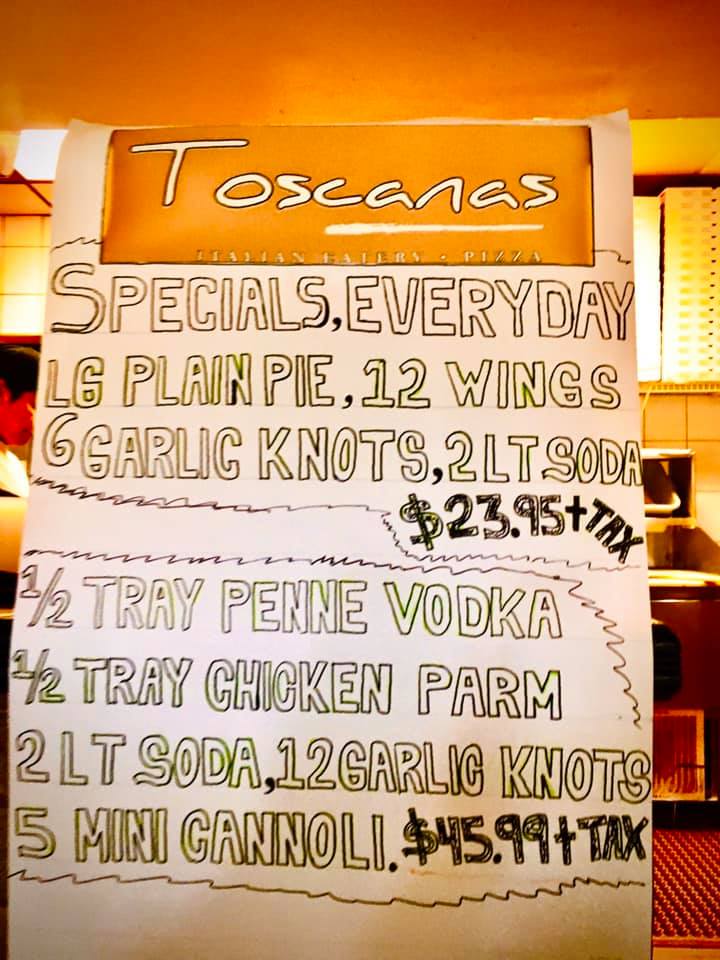 Toscanas
ITALIAN EATERY • PIZZA
SPECIALS, EVERYDAY
LG PLAIN PIE, 12 WINGS
6 GARLIC KNOTS, 2 LT SODA
$23.95 + TAX
1/2 TRAY PENNE VODKA
1/2 TRAY CHICKEN PARM
2 LT SODA, 12 GARLIC KNOTS
5 MINI CANNOLI. $45.99 + TAX